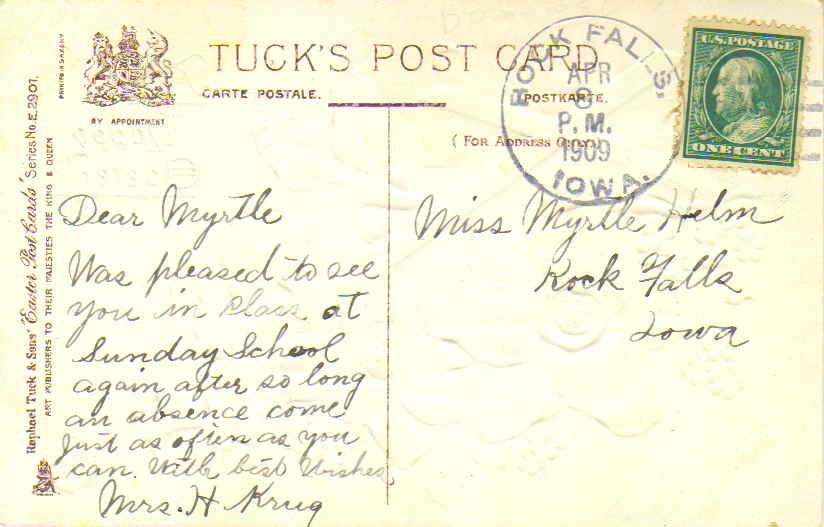 TUCK'S POST CARD
CARTE POSTALE.
POSTKARTE.
BY APPOINTMENT
PRINTED IN SAXONY
(FOR ADDRESS ONLY)
ROCK FALLS.
APR
P. M.
1909
IOWA.
U.S. POSTAGE
ONE CENT
Raphael Tuck & Sons' "Easter Post Cards" Series No. E. 2901.
ART PUBLISHERS TO THEIR MAJESTIES THE KING & QUEEN
Dear Myrtle
Was pleased to see
you in class at
Sunday School
again after so long
an absence come
just as often as you
can. With best Wishes
Mrs. H Krug
Miss Myrtle Helm
Rock Falls
Iowa